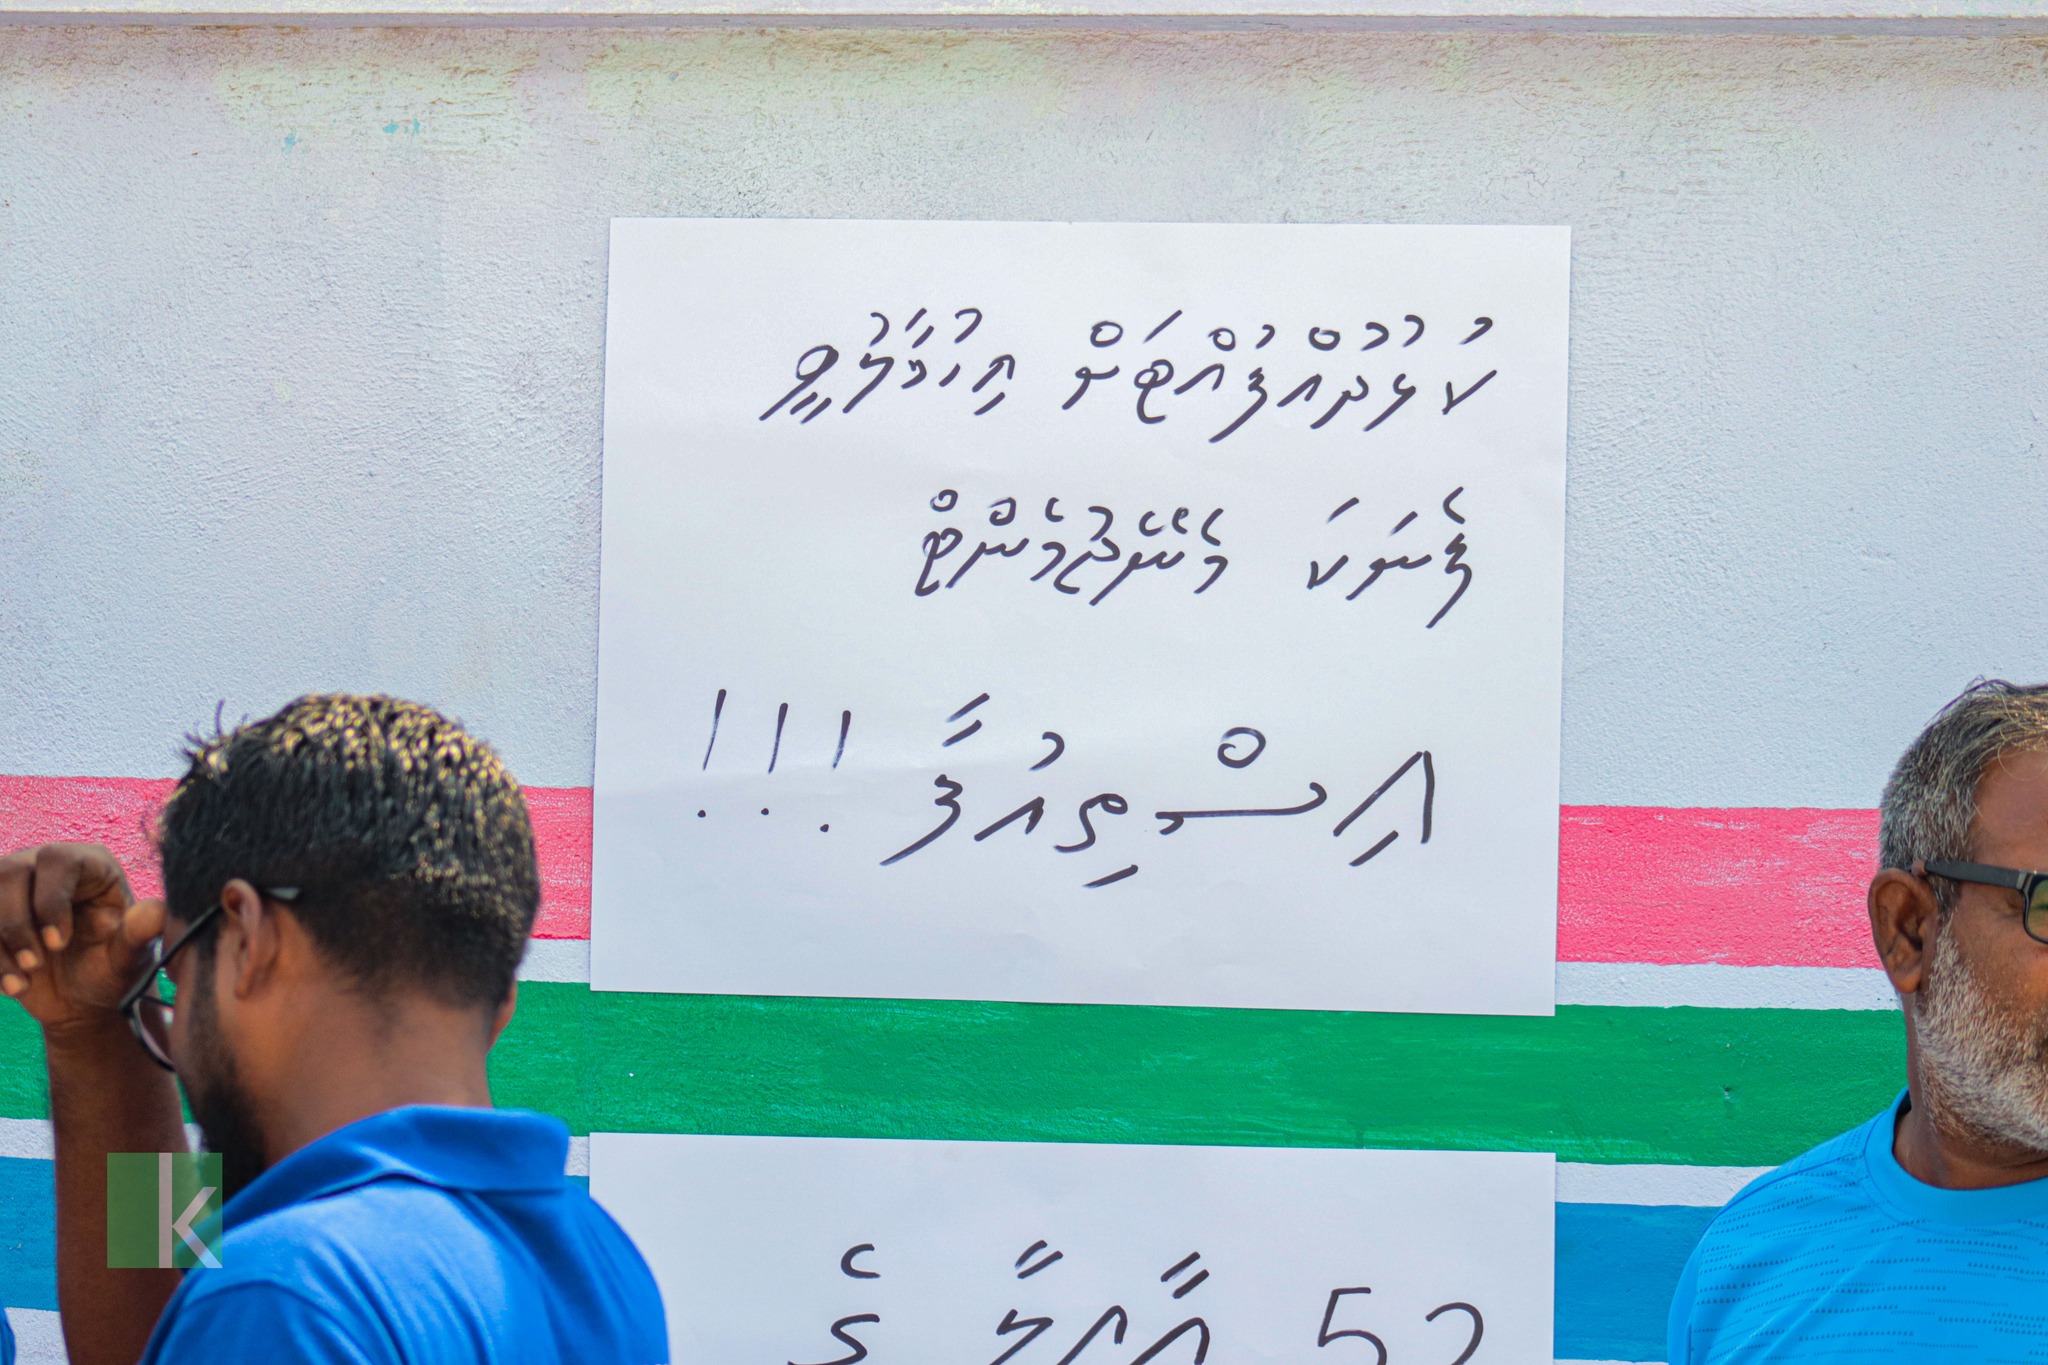 ކުޅުދުއްފުއްޓަށް އިހުމާލުވީ
ފެނަކަ މެނޭޖުމެންޓް
އިސްތިއުފާ !!!
52
k